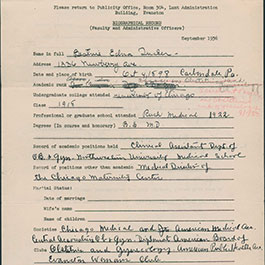 Please return to Publicity Office, Room 304, Lunt Administration
Building, Evanston
BIOGRAPHICAL RECORD
(Faculty and Administrative Officers)
September 1936
Name in full Beatrice Edna Tucker
Address 1336 Newberry Ave
Date and place of birth Oct 4 1898 Carbondale
Academic rank
Undergraduate college attended University of Chicago
Class 1918
Professional or graduate school attended Rush Medical 1922
Degrees (In course and honorary) B.S. M.D
Record of academic positions held Clinical Assistant Dept of
OB & Gyn. Northwestern University Medical School
Record of positions other than academic Medical Director of
the Chicago Maternity Center
Marital Status:
Date of marriage
Wife's name
Name of children
Societies Chicago Medical and American Medical
Central Association Obs & Gyn Diplomat American Board of
Obstetrics and Gynecology American Public Health
Evanston Womans Club